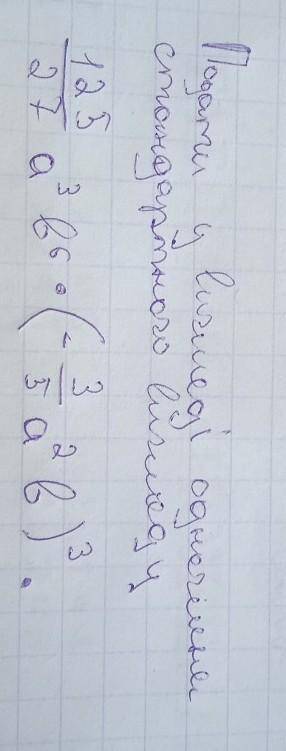 Подати у вигляді одночлена
стандартного вигляду
125/27 a³b⁶ · (-3/5 a²b)³.